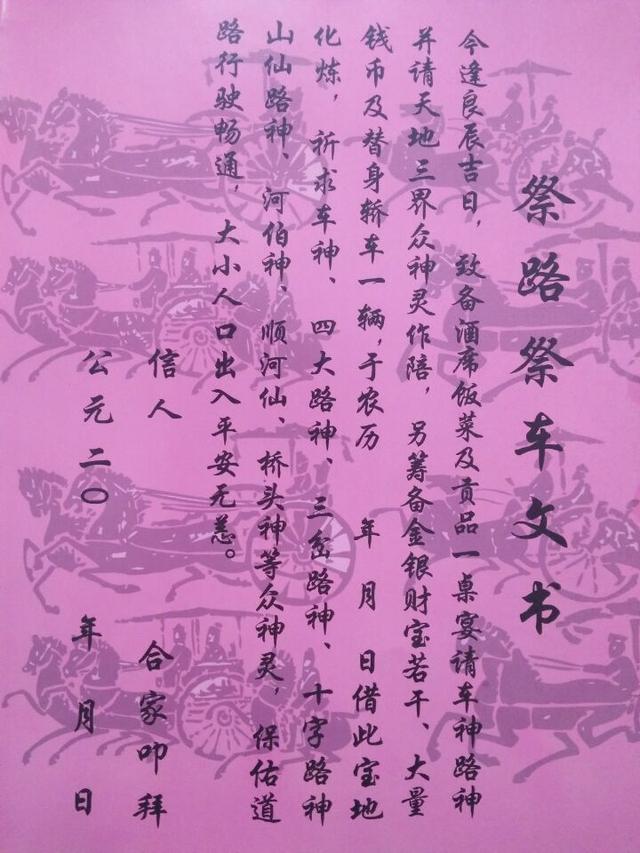 祭路祭车文书
今逢良辰吉日，致备酒席饭菜及贡品一桌宴请车神路神
并请天地三界众神灵作陪，另筹备金银财宝若干、大量
钱币及替身轿车一辆，于农历 年 月 日借此宝地
化炼，祈求车神、四大路神、三岔路神、十字路神
山仙路神、河伯神、顺河仙、桥头神等众神灵，保佑道
路行驶畅通，大小人口出入平安无恙。
信人 合家叩拜
公元二〇 年 月 日